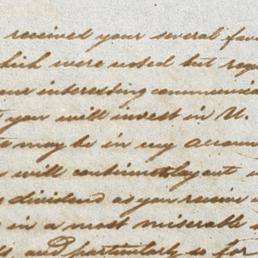 received your several fav
which were noted but req
our interesting communica
you will invest in U.
may be in my accoun
will continue to lay out
dividend as you receive
in a most miserable
and particularly so for